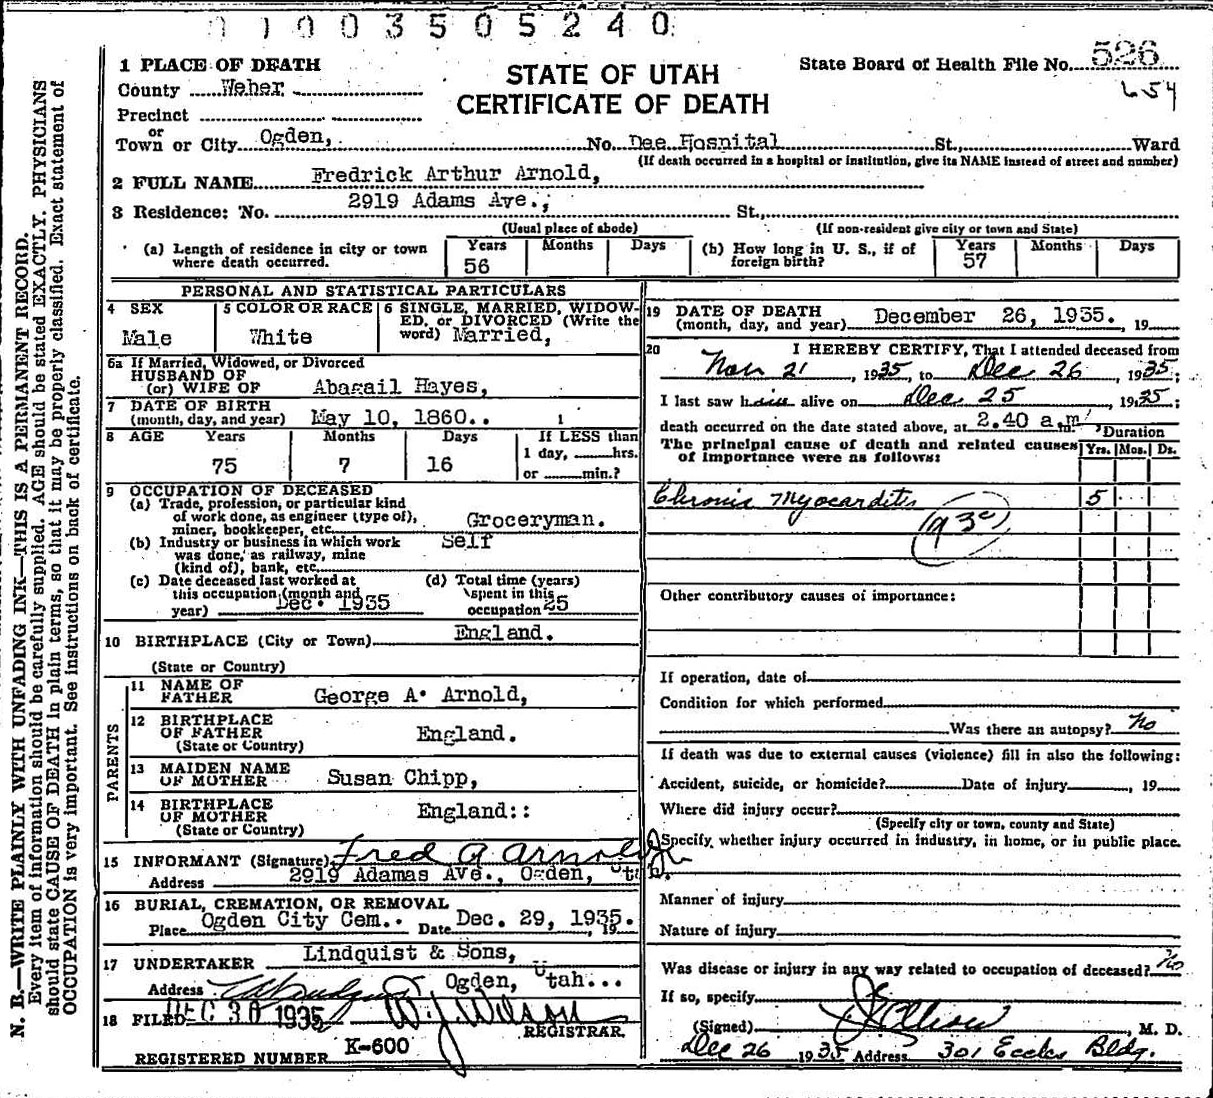 01003505240
1 PLACE OF DEATH
County Weber
Precinct
or
Town or City Ogden, No. Dee Hospital St., Ward
STATE OF UTAH
CERTIFICATE OF DEATH
State Board of Health File No. 526
654
(If death occurred in a hospital or institution, give its NAME instead of street and number)
2 FULL NAME Fredrick Arthur Arnold,
3 Residence: No. 2919 Adams Ave., St.,
(Usual place of abode) (If non-resident give city or town and State)
(a) Length of residence in city or town where death occurred. Years 56 Months Days
(b) How long in U. S., if of foreign birth? Years 57 Months Days
PERSONAL AND STATISTICAL PARTICULARS
4 SEX Male
5 COLOR OR RACE White
6 SINGLE, MARRIED, WIDOWED, or DIVORCED (Write the word) Married,
6a If Married, Widowed, or Divorced
HUSBAND OF
(or) WIFE OF Abagail Hayes,
7 DATE OF BIRTH
(month, day, and year) May 10, 1860.. 1
8 AGE Years 75 Months 7 Days 16
If LESS than
1 day, hrs.
or min.?
9 OCCUPATION OF DECEASED
(a) Trade, profession, or particular kind
of work done, as engineer (type of),
miner, bookkeeper, etc. Groceryman.
(b) Industry or business in which work
was done, as railway, mine
(kind of), bank, etc. Self
(c) Date deceased last worked at
this occupation (month and
year) Dec. 1935
(d) Total time (years)
spent in this
occupation 25
10 BIRTHPLACE (City or Town) England.
(State or Country)
PARENTS
11 NAME OF
FATHER George A. Arnold,
12 BIRTHPLACE
OF FATHER England.
(State or Country)
13 MAIDEN NAME
OF MOTHER Susan Chipp,
14 BIRTHPLACE
OF MOTHER England::
(State or Country)
15 INFORMANT (Signature) Fred A Arnold Jr
Address 2919 Adamas Ave., Ogden, Utah.
16 BURIAL, CREMATION, OR REMOVAL
Place Ogden City Cem.. Date Dec. 29, 1935. , 19
17 UNDERTAKER Lindquist & Sons,
Address Ogden, Utah...
18 FILED DEC 30 1935 W. J. Wilson
REGISTRAR.
REGISTERED NUMBER K-600
19 DATE OF DEATH
(month, day, and year) December 26, 1935. , 19
20 I HEREBY CERTIFY, That I attended deceased from
Nov 21, 1935, to Dec 26, 1935;
I last saw him alive on Dec 25, 1935;
death occurred on the date stated above, at 2.40 a.m.
The principal cause of death and related causes
of importance were as follows:
Duration
Yrs. Mos. Ds.
Chronic Myocarditis 5
(93c)
Other contributory causes of importance:
If operation, date of
Condition for which performed
Was there an autopsy? No
If death was due to external causes (violence) fill in also the following:
Accident, suicide, or homicide? Date of injury , 19
Where did injury occur?
(Specify city or town, county and State)
Specify whether injury occurred in industry, in home, or in public place.
Manner of injury
Nature of injury
Was disease or injury in any way related to occupation of deceased? No
If so, specify
(Signed) , M. D.
Dec 26 1935 Address 301 Eccles Bldg.
N. B.—WRITE PLAINLY WITH UNFADING INK—THIS IS A PERMANENT RECORD.
Every item of information should be carefully supplied. AGE should be stated EXACTLY. PHYSICIANS
should state CAUSE OF DEATH in plain terms, so that it may be properly classified. Exact statement of
OCCUPATION is very important. See instructions on back of certificate.